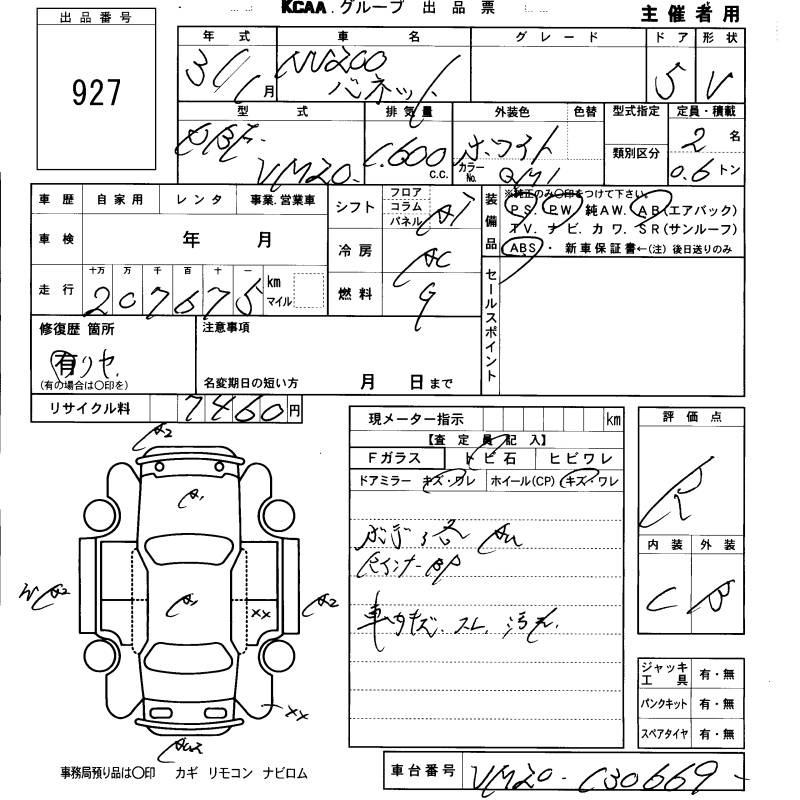 KCAA グループ 出品票
主催者用
出品番号
927
年式 車名 グレード ドア 形状
31 月 NV200 バネット 5 V
型式 排気量 外装色 色替 型式指定 定員・積載
VM20 1,600 c.c. ホワイト 2 名
カラーNo. QM1 類別区分 0.6 トン
車歴 自家用 レンタ 事業.営業車
シフト フロア コラム パネル AT
装備品 ※純正のみ〇印をつけて下さい。
PS. PW. 純AW. AB(エアバック)
TV. ナビ. カワ. SR(サンルーフ)
ABS ・ 新車保証書←(注)後日送りのみ
車検 年 月
冷房 AC
走行 十万 万 千 百 十 一
207675 km マイル
燃料 G
セールスポイント
修復歴 箇所
有 リヤ.
(有の場合は〇印を)
注意事項
名変期日の短い方 月 日まで
リサイクル料 7460 円
現メーター指示 km
【査定員記入】
Fガラス トビ石 ヒビワレ
ドアミラー キズ・ワレ ホイール(CP) キズ・ワレ
評価点
R
内装 外装
C B
A2
A1
A1
WA2
XX
A2
XX
ペイント
BP
車内キズ. スレ. 汚れ.
ジャッキ工具 有・無
パンクキット 有・無
スペアタイヤ 有・無
事務局預り品は〇印 カギ リモコン ナビロム
車台番号 VM20-130669